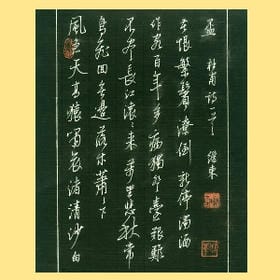 風急天高猿嘯哀渚清沙白
鳥飛回無邊落木蕭蕭下
不盡長江滾滾來萬里悲秋常
作客百年多病獨登臺艱難
苦恨繁鬢潦倒新停濁酒
盃 杜甫詩一首 繼東